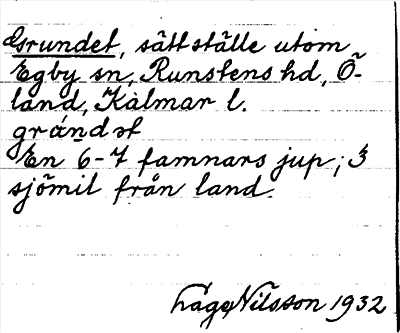 Grundet, sättställe utom
Egby sn, Runstens hd, Ö-
land, Kalmar l.
grándət
En 6-7 famnars jup; 3
sjömil från land.
Lage Nilsson 1932